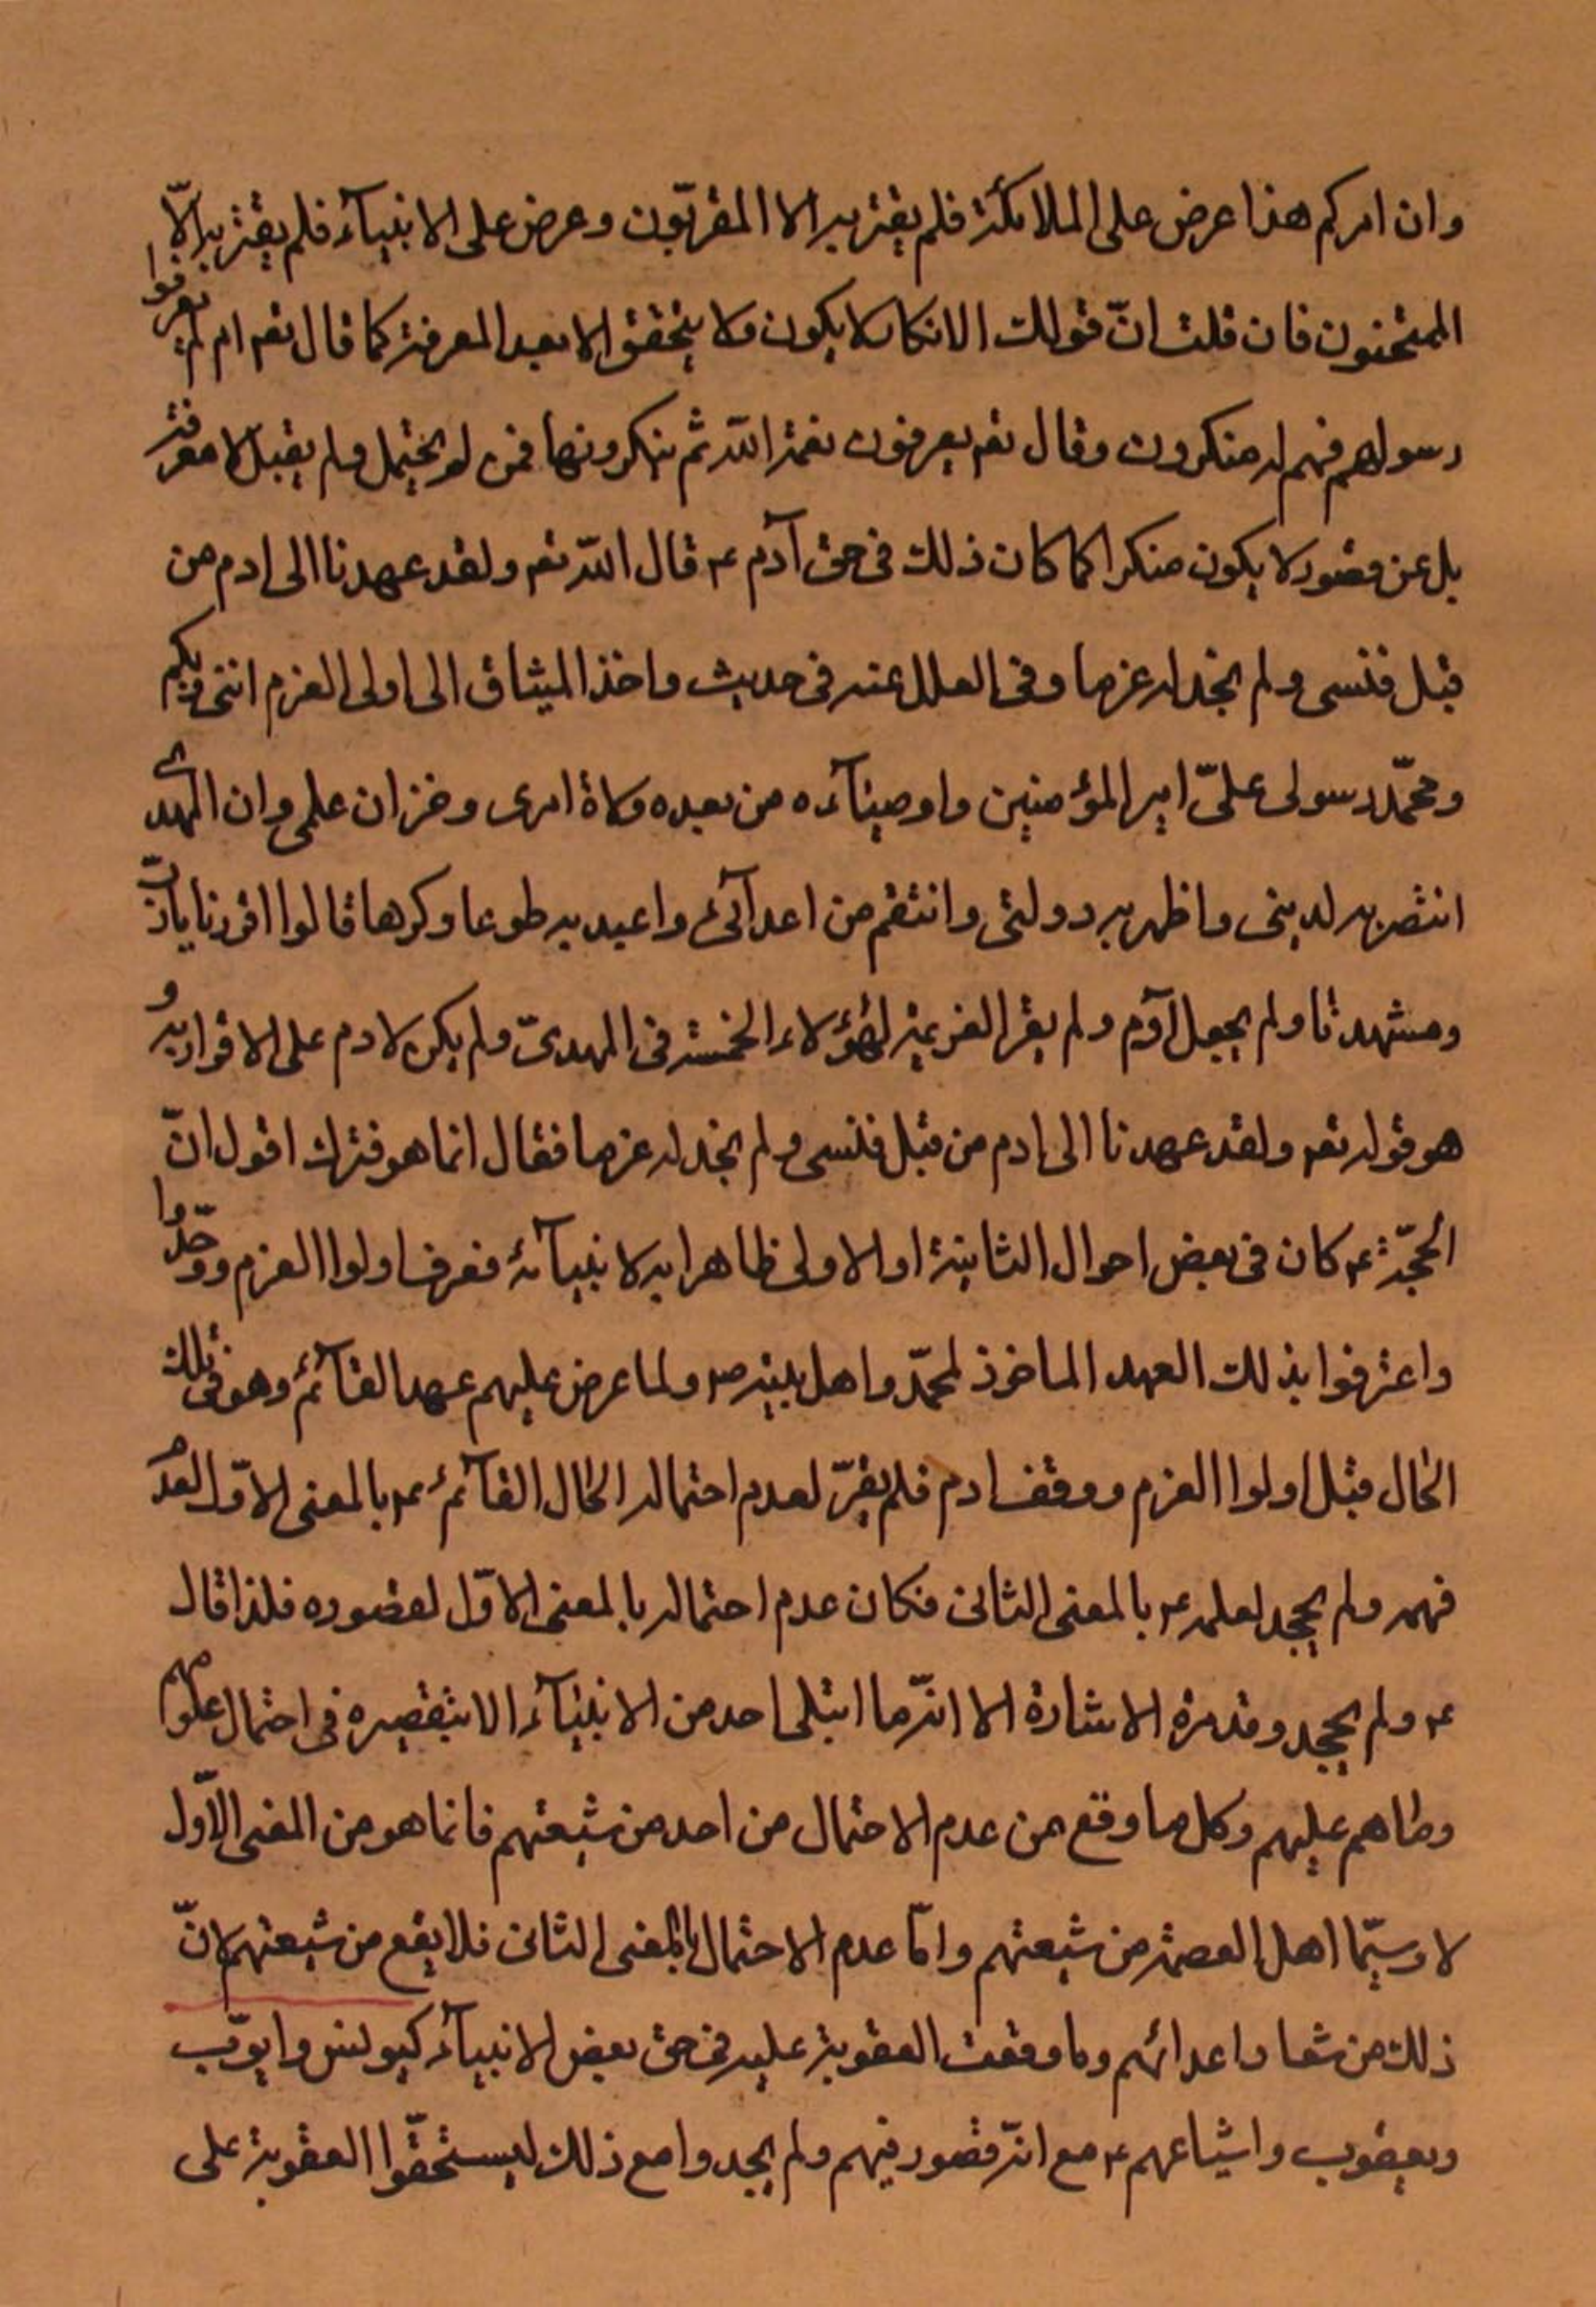 وان امركم هذا عرض على الملائكة فلم يقر به الا المقربّون وعرض على الانبيآء فلم يقرّ به الّا
الممتحنون فان قلت انّ قولك الانكار لا يكون ولا يتحقق الا بعد المعرفة كما قال تعم ام لم يعرفوا
رسولهم فهم له منكرون وقال تعم يعرفون نعمة اللّه ثم ينكرونها فمن لم يحتمل ولم يقبل لا معرفة
بل عن قصور لا يكون منكرا كما كان ذلك فى حق آدم ع قال اللّه تعم ولقد عهدنا الى ادم من
قبل فنسى ولم نجد له عزما وفى العلل عنه فى حديث واخذ الميثاق الى اولى العزم اننى ربكم
ومحمّد رسولى علىّ امير المؤمنين واوصيآءه من بعده ولاة امرى وخزان علمى وان المهدى
انتصر به لدينى واظهر به دولتى وانتقم من اعدآئى واعبد به طوعا وكرها قالوا اقررنا يا ربّ
وشهدنا ولم يجحد آدم ولم يقر العزيمة لهؤلاء الخمسة فى المهدىّ ولم يكن لادم على الاقرار به و
هو قوله تعم ولقد عهدنا الى ادم من قبل فنسى ولم نجد له عزما فقال انما هو فترك اقول انّ
الحجّة ع كان فى بعض احوال الثانية او الاولى ظاهرا به لانبيآئه فعرف اولوا العزم ووحّدوا
واعترفوا بذلك العهد الماخوذ لمحمّد واهل بيته ص ولما عرض عليهم عهد القآئم وهو فى تلك
الحال قبل اولوا العزم ووقف ادم فلم يقرّ لعدم احتماله الحال القآئم ع بالمعنى الاوّل لعدم
فهمه ولم يجحد لعلمه ع بالمعنى الثانى فكان عدم احتماله بالمعنى الاوّل لقصوره فلذا قال
ع ولم يجحد وقد مرّة الاشارة الا انّه ما ابتلى احد من الانبيآء الا بتقصيره فى احتمال علومهم
وطاهم عليهم وكل ما وقع من عدم الاحتمال من احد من شيعتهم فانما هو من المعنى الاوّل
لا وسيّما اهل العصمة من شيعتهم وامّا عدم الاحتمال بالمعنى الثانى فلا يقع من شيعتهم لانّ
ذلك من شعار اعدائهم وما وقعت العقوبة عليه فى حق بعض الانبيآء كيونس وايوّب
ويعقوب واشياعهم ع مع انّه قصور فيهم ولم يجحدوا مع ذلك ليستحقّوا العقوبة على